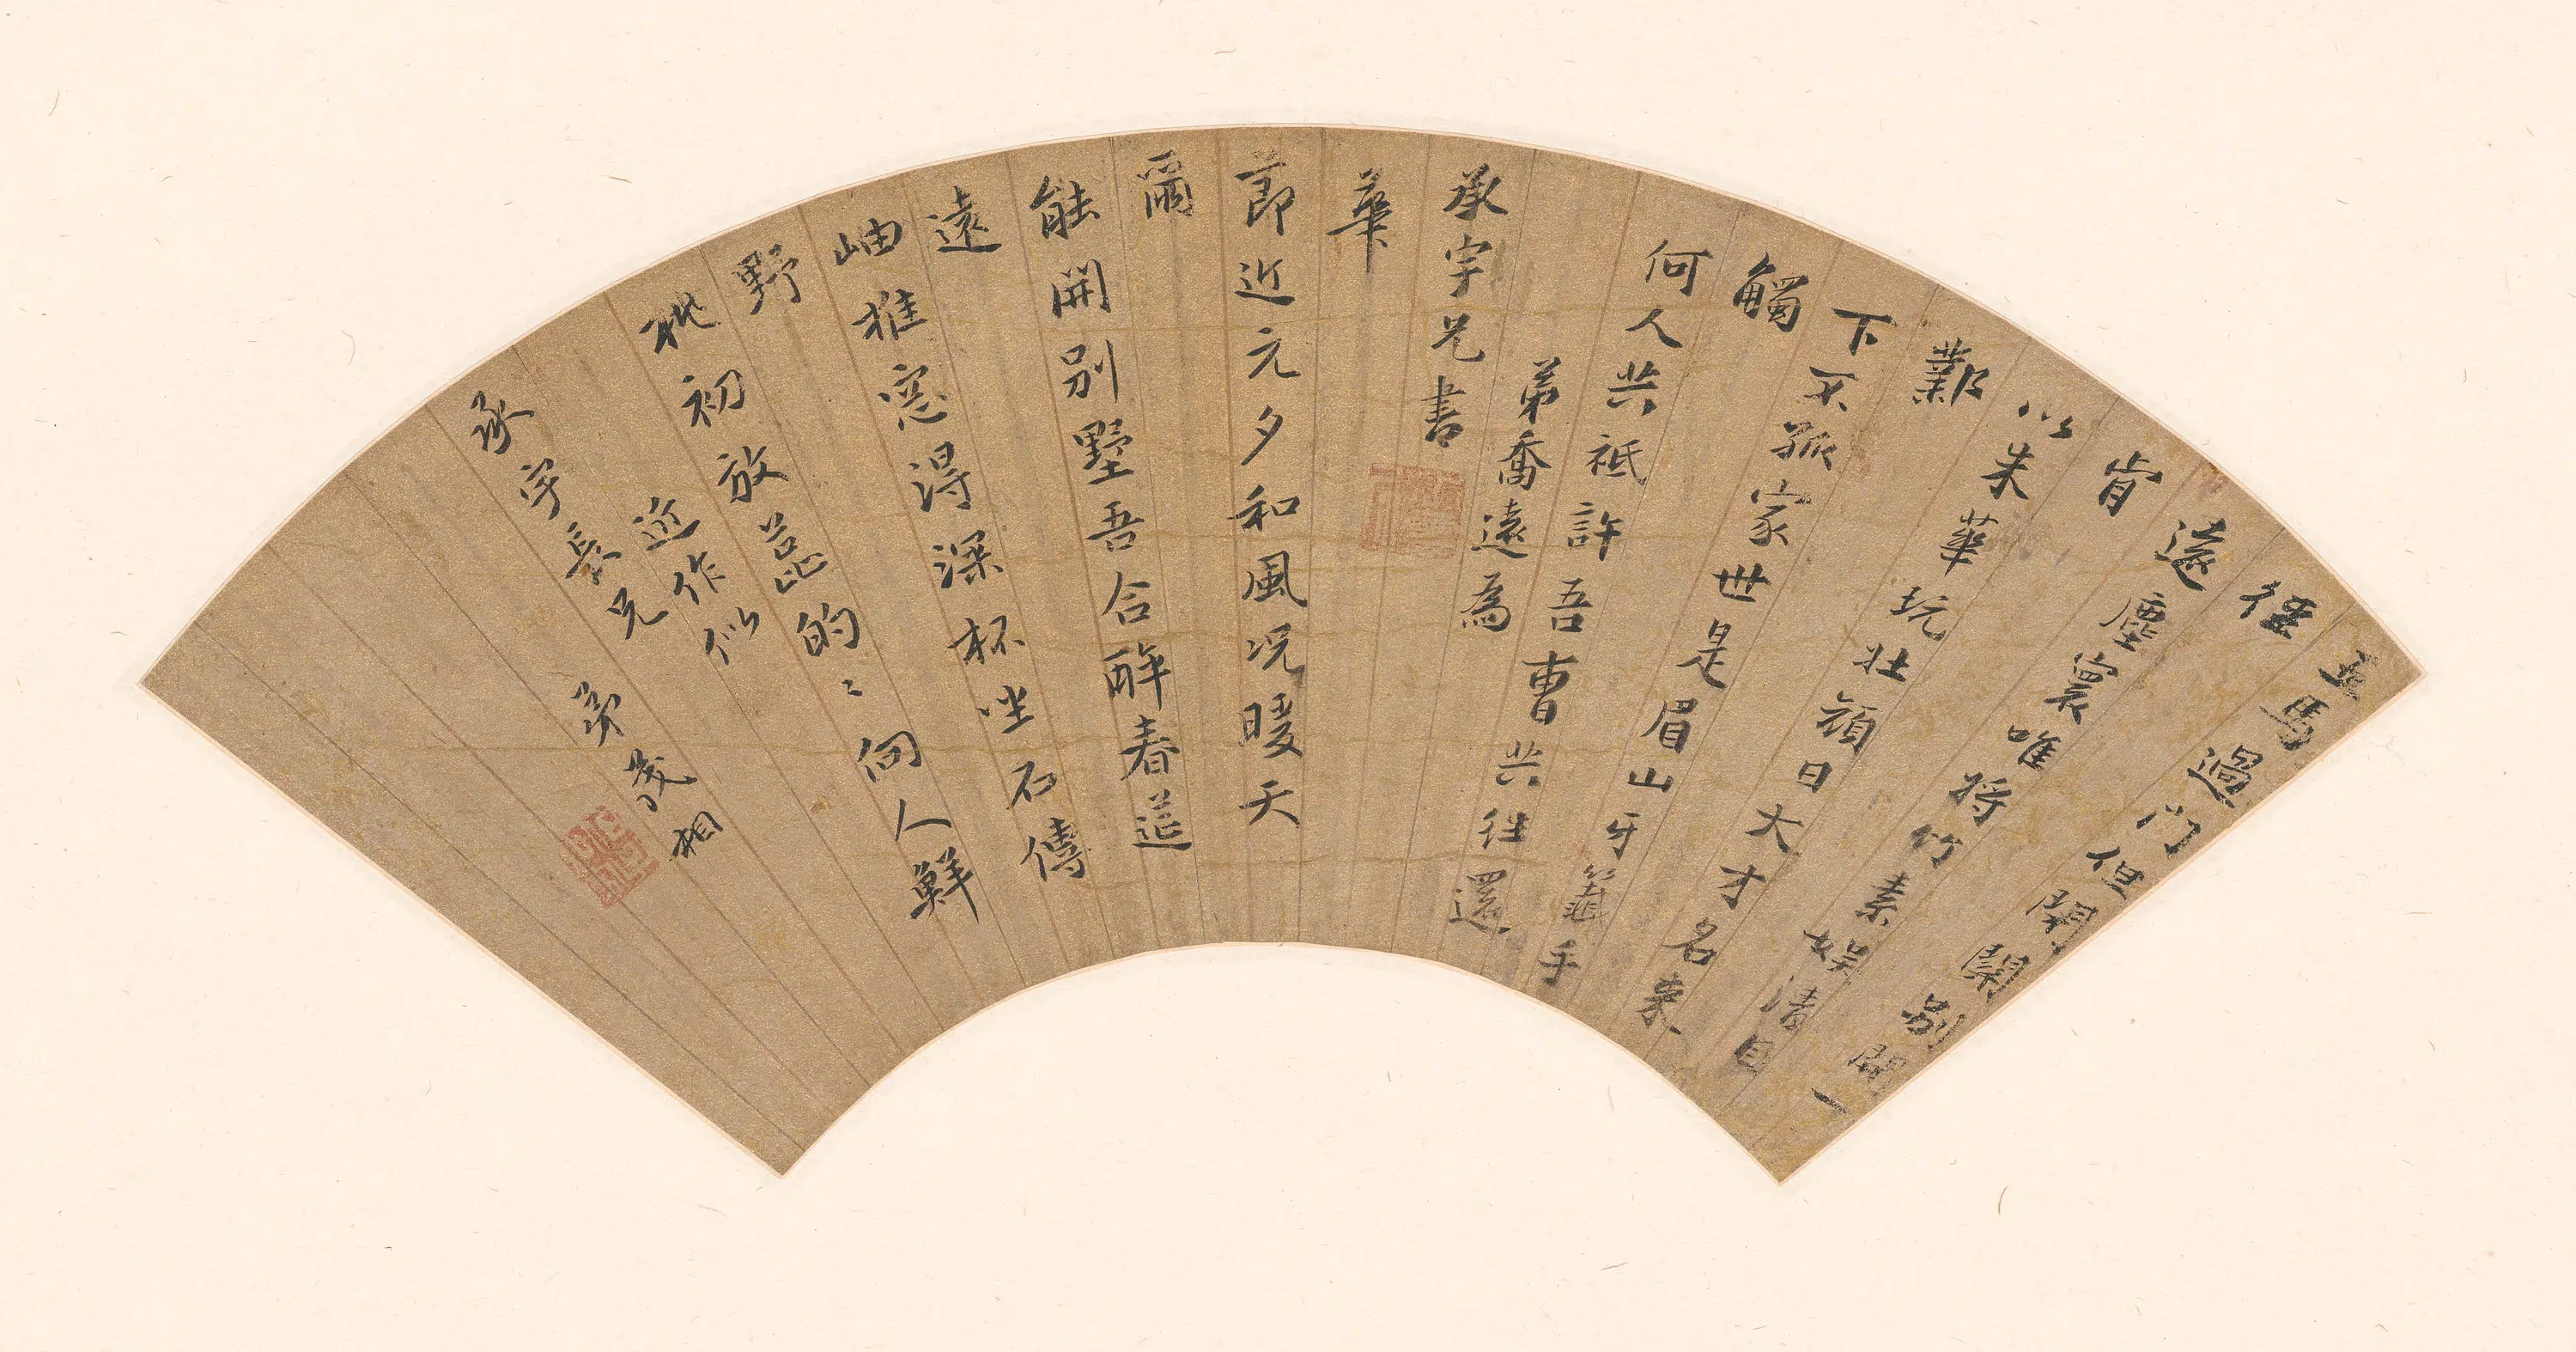 五馬過門但閉關別開一
徑
遠塵寰唯將竹素娛清日
肯
以朱華玩壯顏日大才名來
艱
下不孤家世是眉山牙籤手
觸
何人共祗許吾曹共往還
弟喬遠為
承宇兄書
華
節近元夕和風況暖天
爾
能開別墅吾合醉春筵
遠
岫推窓得深杯坐石傳
野
桃初放蕊的〻向人鮮
近作似
承宇長兄
弟茂相